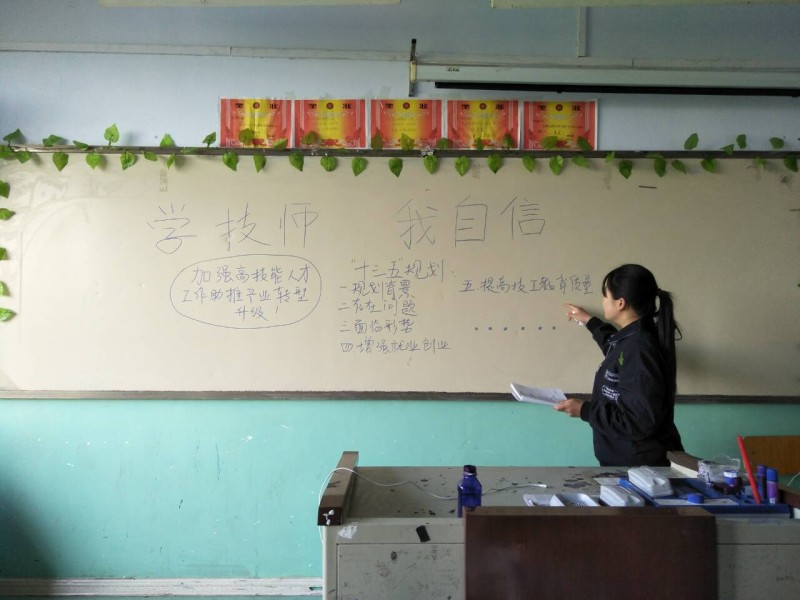 学技师 我自信
加强高技能人才
工作助推产业转型
升级！
"十三五"规划：
一规划背景
二存在问题
三面临形势
四增强就业创业
五.提高技工教育质量
······